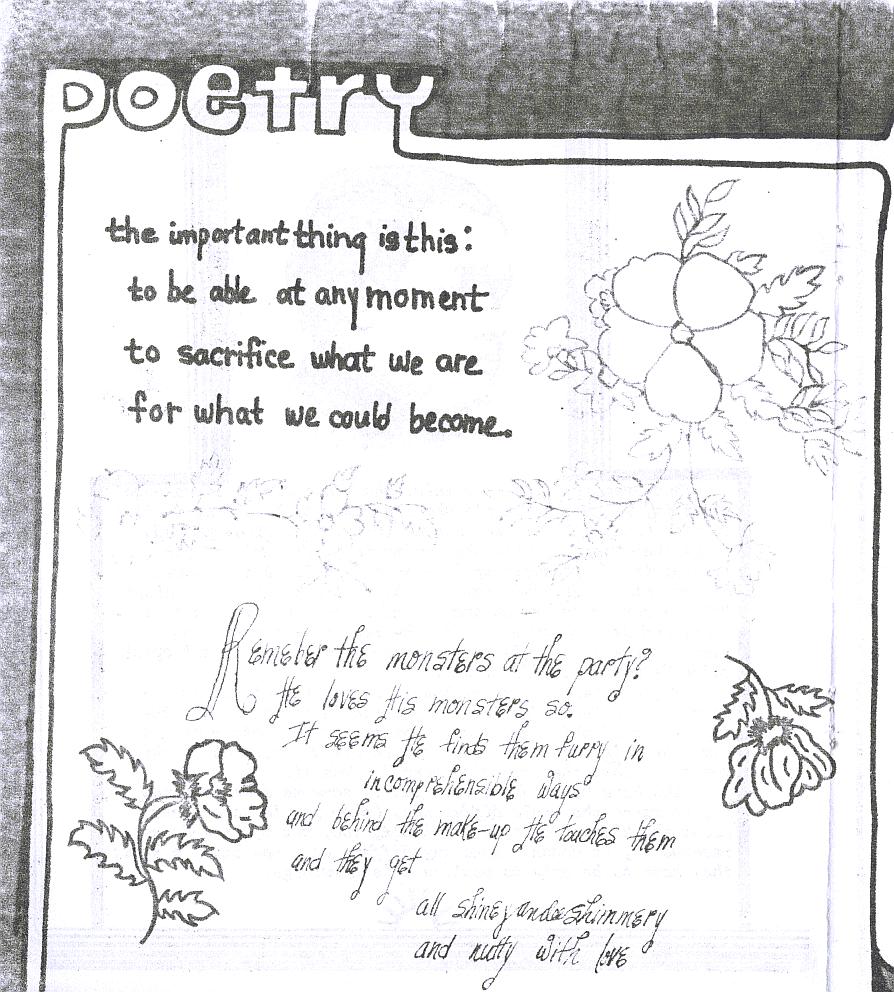 poetry
the important thing is this:
to be able at any moment
to sacrifice what we are
for what we could become.
Remeber the monsters at the party?
He loves His monsters so.
It seems He finds them furry in
incomprehensible ways
and behind the make-up He touches them
and they get
all shiney and shimmery
and nutty with love